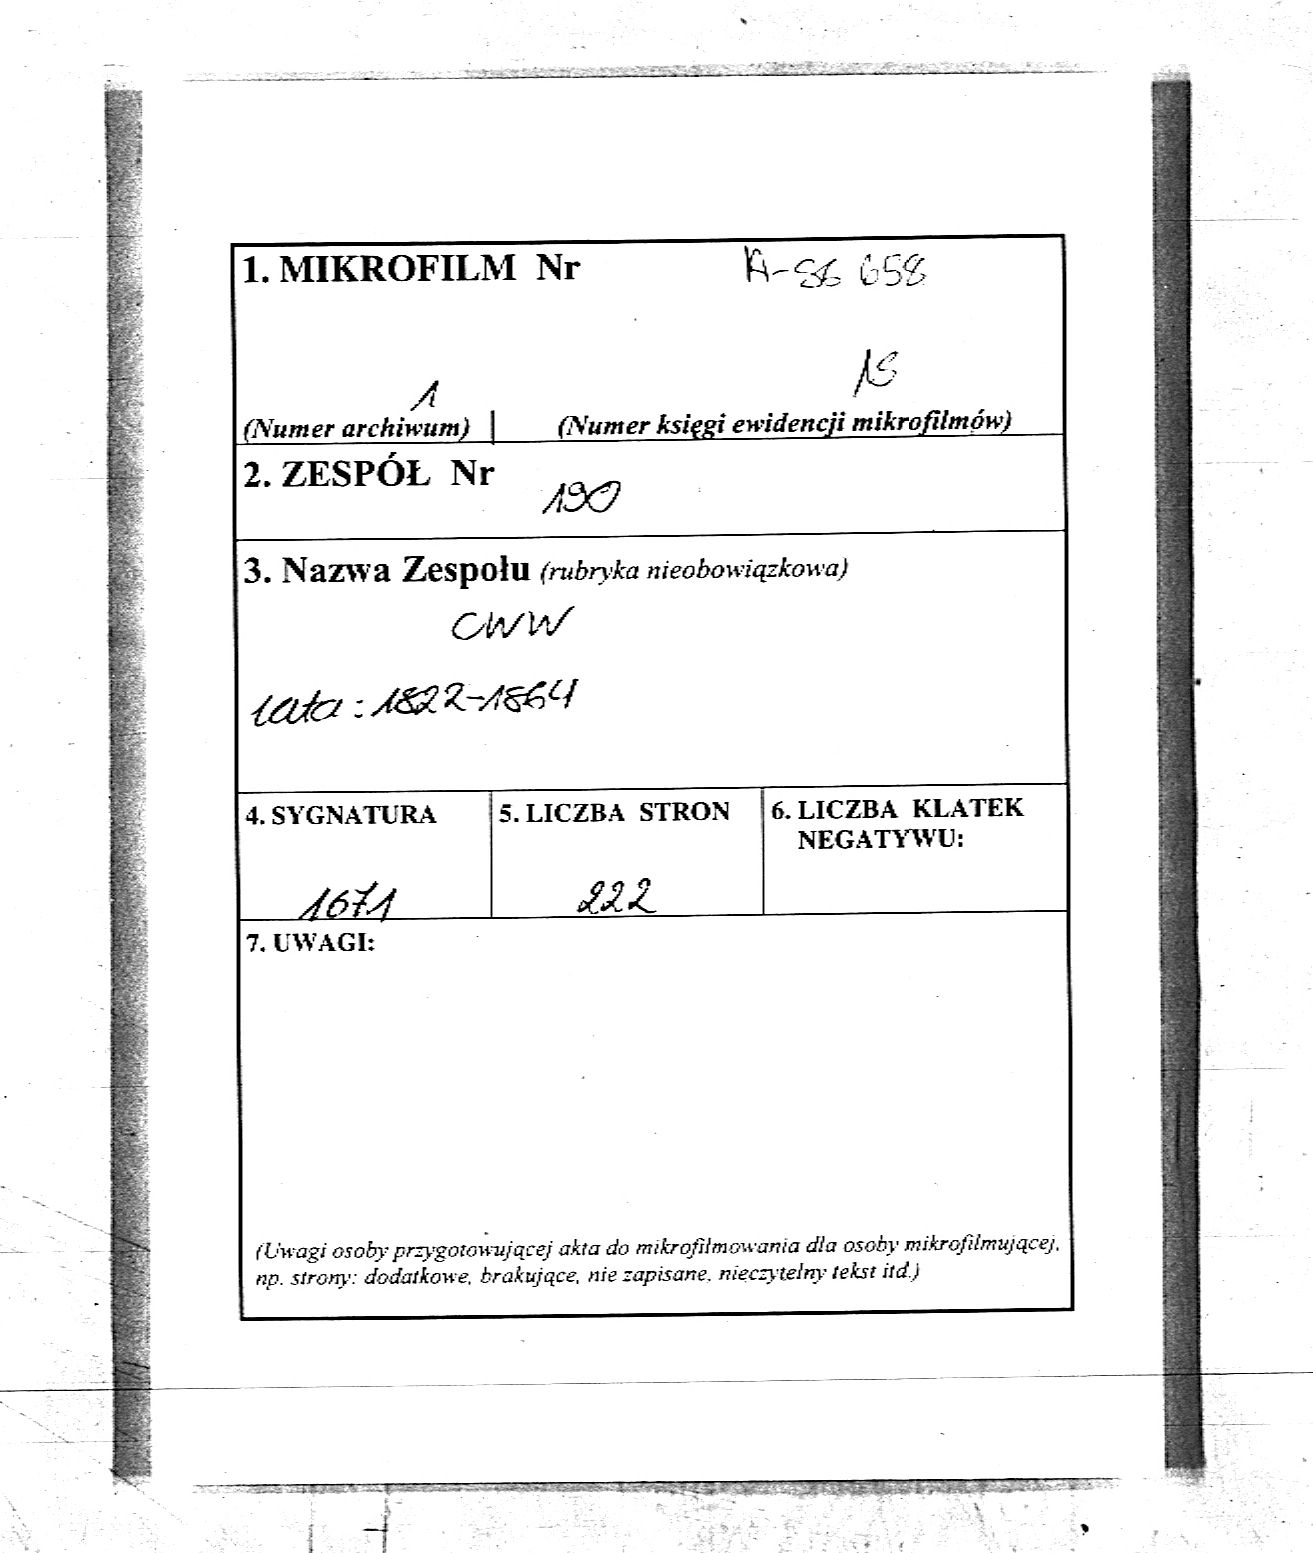 1. MIKROFILM Nr A-86 658
1 15
(Numer archiwum) (Numer księgi ewidencji mikrofilmów)
2. ZESPÓŁ Nr
190
3. Nazwa Zespołu (rubryka nieobowiązkowa)
CWW
lata: 1822-1864
4. SYGNATURA 5. LICZBA STRON 6. LICZBA KLATEK
NEGATYWU:
1671 222
7. UWAGI:
(Uwagi osoby przygotowującej akta do mikrofilmowania dla osoby mikrofilmującej,
np. strony: dodatkowe, brakujące, nie zapisane, nieczytelny tekst itd.)